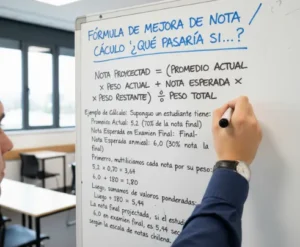 FÓRMULA DE MEJORA DE NOTA /
CÁCULO '¿QUÉ PASARÍA SI...?
NOTA PROYECTAD = (PROMEDIO ACTUAL
× PESO ACTUAL + NOTA ESPERADA ×
× PESO RESTANTE) ÷ PESO TOTAL
Ejemplo de Cálculo: Supongue un estudiante tiene:
Promedio Actual: 5.2 (70% de la nota final)
Nota Esperada en Examen Final: Final-
Nota Esperada enmeal: 6.0 (30% nota la
final)
Primero, multiciamos cada nota por su peso:
5.2 × 0,70 = 3,64
6.0 + 180 = 1,80
Luego, sumamos valores ponderadas:
Luego + 180 = 5,44
La nota final proyectada, si el estud
6.0 en examen final, es 5,44 seg
según la escala de notas chilena.